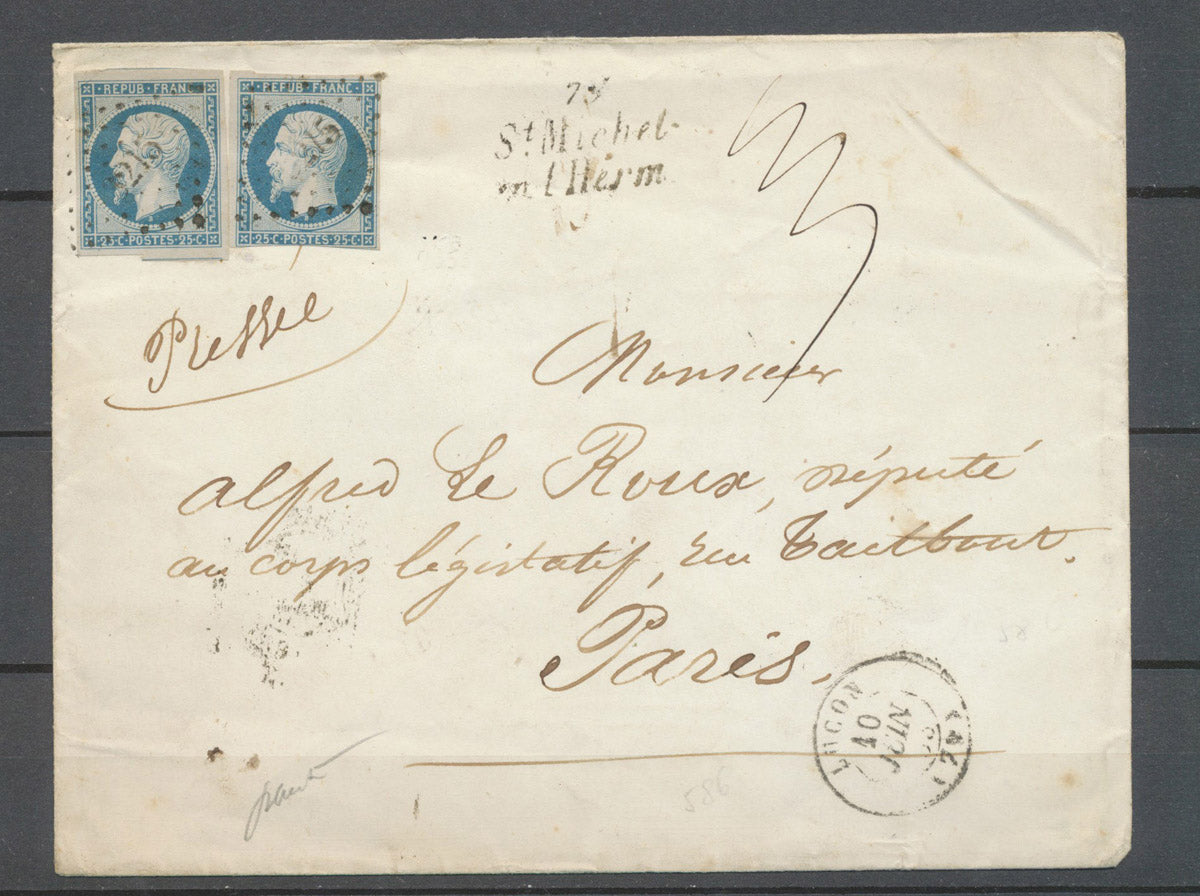 REPUB·FRANC·
REPUB·FRANC·
25·C·POSTES·25·C·
25·C·POSTES·25·C·
St Michel-
en l'Herm
Pressée
Monsieur
alfred Le Roux, député
au corps législatif, rue Taitbout.
Paris.
LUCON
10
JUIN
(79)
586
58